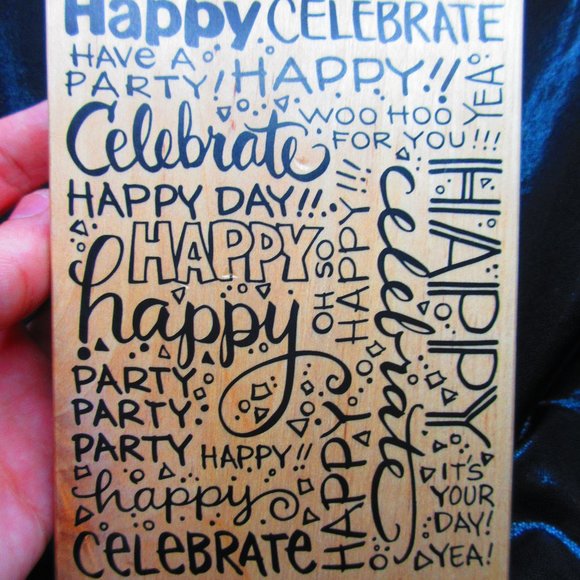 Happy CELEBRATE
HAVE A
PARTY! HAPPY!!
YEA
Celebrate
WOO HOO
FOR YOU!!!
HAPPY DAY!!
HAPPY
OH SO
HAPPY!!!
celebrate
HAPPY
happy
PARTY
PARTY
PARTY
HAPPY!!
HAPPY
happy
CELEBRATE
IT'S
YOUR
DAY!
YEA!